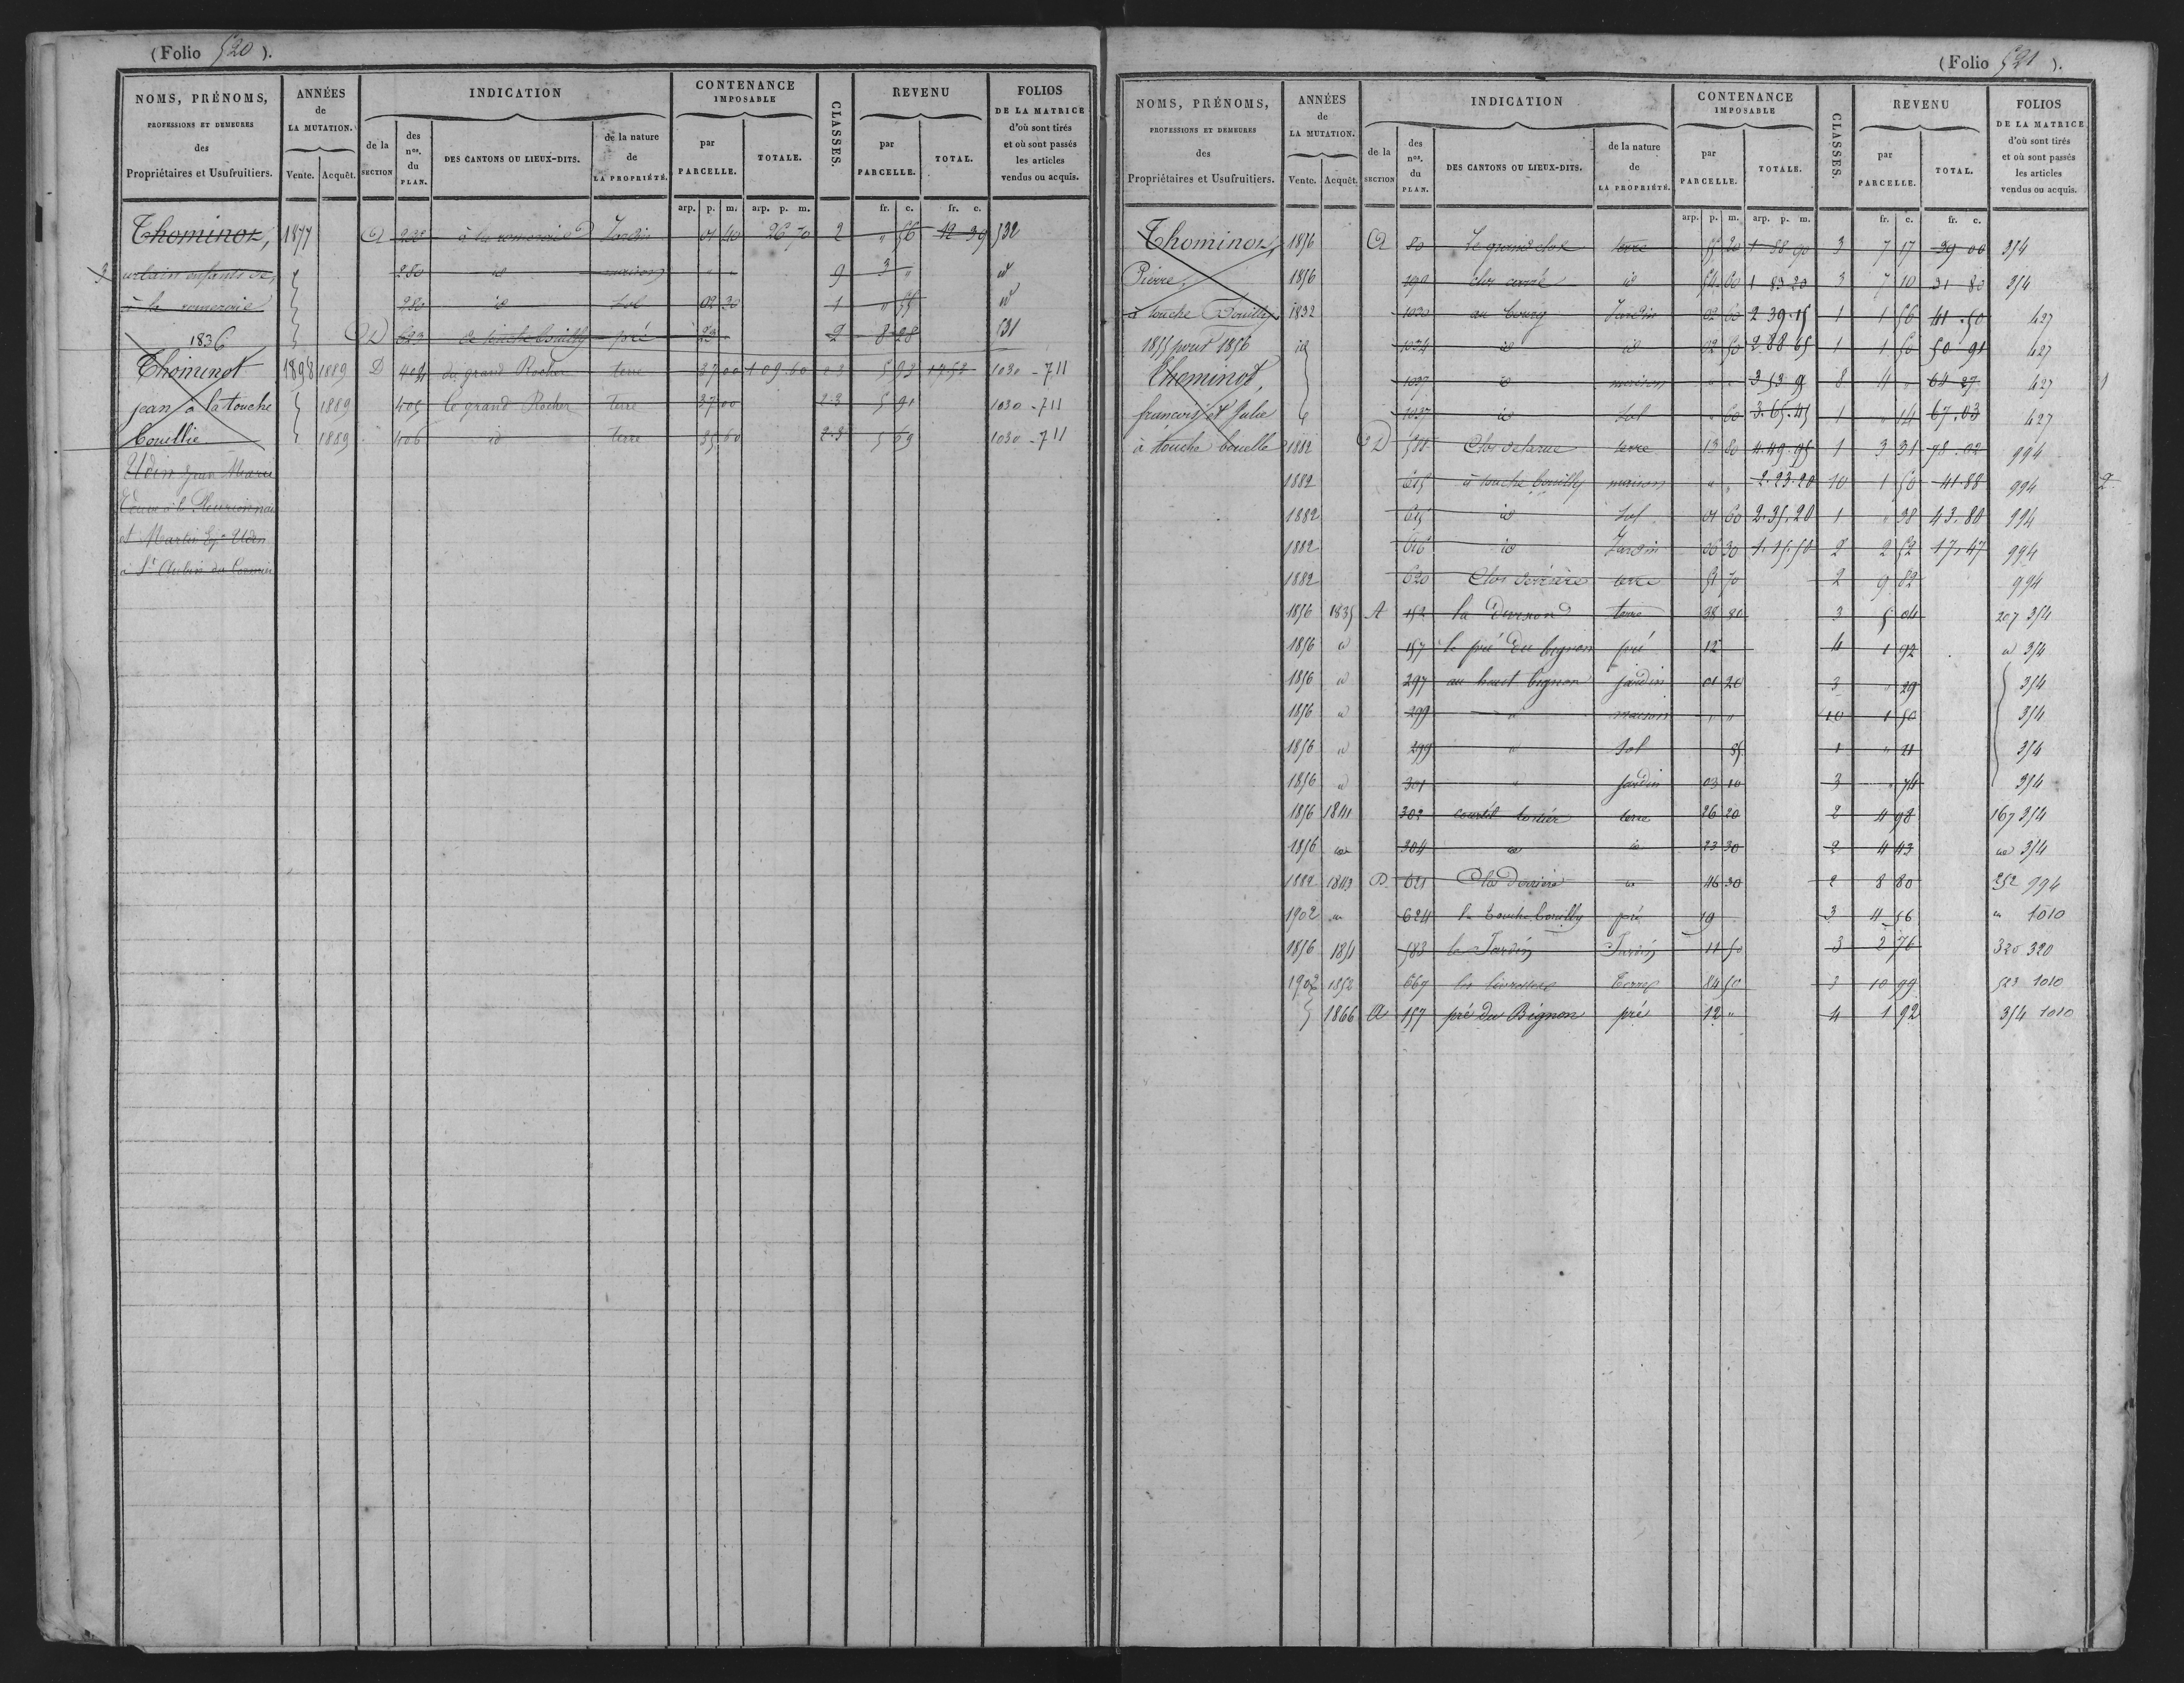 (Folio 520).
NOMS, PRÉNOMS,
PROFESSIONS ET DEMEURES
des
Propriétaires et Usufruitiers.
ANNÉES
de
LA MUTATION.
Vente. Acquêt.
INDICATION
de la SECTION
des nos. du PLAN.
DES CANTONS OU LIEUX-DITS.
de la nature de LA PROPRIÉTÉ.
CONTENANCE
IMPOSABLE
par PARCELLE.
TOTALE.
CLASSES.
REVENU
par PARCELLE.
TOTAL.
FOLIOS
DE LA MATRICE
d'où sont tirés
et où sont passés
les articles
vendus ou acquis.
arp. p. m. arp. p. m. fr. c. fr. c.
Thominot, 1877 A à la romeraie Jardin 01 40 26 70 2 " 56 12 39 532
3 enfants de, 280 id maison " " 9 3 " id
à la romeraie 280 id sol 02 30 1 " id
1836 D 623 pré 23 " 2 8 28 531
Thominot 1898 1889 D 404 du grand Rocher terre 37 00 1 09 60 5 93 1030 - 711
jean à la touche 1889 405 le grand Rocher terre 37 00 2-3 5 91 1030 - 711
Bouellie 1889 406 id terre 35 60 2-3 5 69 1030 - 711
Udin Jean Marie
(Folio 521).
NOMS, PRÉNOMS,
PROFESSIONS ET DEMEURES
des
Propriétaires et Usufruitiers.
ANNÉES
de
LA MUTATION.
Vente. Acquêt.
INDICATION
de la SECTION
des nos. du PLAN.
DES CANTONS OU LIEUX-DITS.
de la nature de LA PROPRIÉTÉ.
CONTENANCE
IMPOSABLE
par PARCELLE.
TOTALE.
CLASSES.
REVENU
par PARCELLE.
TOTAL.
FOLIOS
DE LA MATRICE
d'où sont tirés
et où sont passés
les articles
vendus ou acquis.
arp. p. m. arp. p. m. fr. c. fr. c.
Thominot, 1856 A 80 Le grand clos terre 55 20 1 58 90 3 7 17 39 00 354
Pierre, 1856 190 clos carré id 54 60 1 83 20 3 7 10 31 80 354
à touche Bouilly 1832 1030 au bourg Jardin 02 60 2 39.15 1 1 56 41.50 427
1855 pour 1856 id 1034 id id 02 50 2 88 65 1 1 50 50.91 427
Thominot, 1037 id maison " " 3 53 9 8 4 " 64 27 427 1
françois et Julie 1037 id sol " 60 3.65.45 1 " 14 67.03 427
à touche bouelle 1882 D 588 Clos delarue terre 13 80 4.49.95 1 3 31 78.02 994
1882 615 à touche bouilly maison " " 2.23.20 10 1 50 41.88 994 2
1882 615 id sol 01 60 2.35.20 1 " 38 43.80 994
1882 616 id Jardin 06 30 1.15.50 2 2 52 17.47 994
1882 620 Clos derrière terre 51 70 2 9 82 994
1856 1835 A 152 la terre 38 80 3 5 04 207 354
1856 id 157 le pré du bignon pré 12 4 1 92 id 354
1856 id 297 au haut bignon jardin 01 20 3 " 29 354
1856 id 299 " maison " " 10 1 50 354
1856 id 299 " sol 85 1 " 21 354
1856 id 301 " jardin 03 10 3 " 74 354
1856 1841 302 courtil terre 26 20 2 4 98 167 354
1856 id 304 id id 23 30 2 4 43 id 354
1882 1843 D 621 Clos derrière id 46 30 2 8 80 252 994
1902 id 624 la touche bouilly pré 19 3 4 56 id 1010
1856 1851 583 le Jardin Jardin 11 50 3 2 76 320 320
1902 1852 667 Terre 84 50 3 10 99 523 1010
1866 A 157 pré du Bignon pré 12 " 4 1 92 354 1010